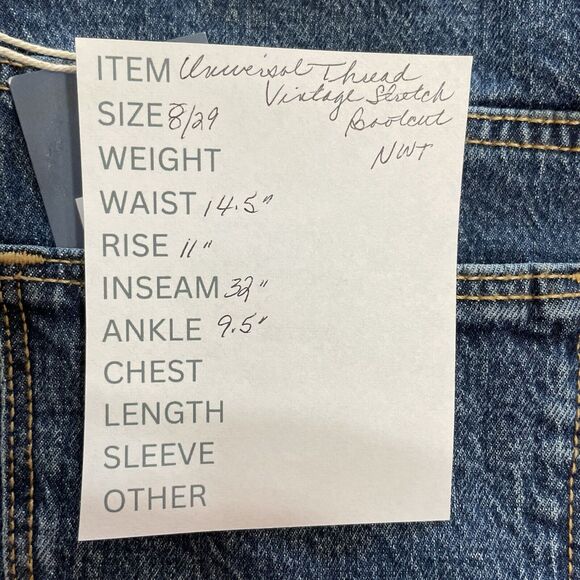 ITEM Universal Thread
Vintage Stretch
SIZE 8/29 Bootcut
WEIGHT NWT
WAIST 14.5"
RISE 11"
INSEAM 32"
ANKLE 9.5"
CHEST
LENGTH
SLEEVE
OTHER